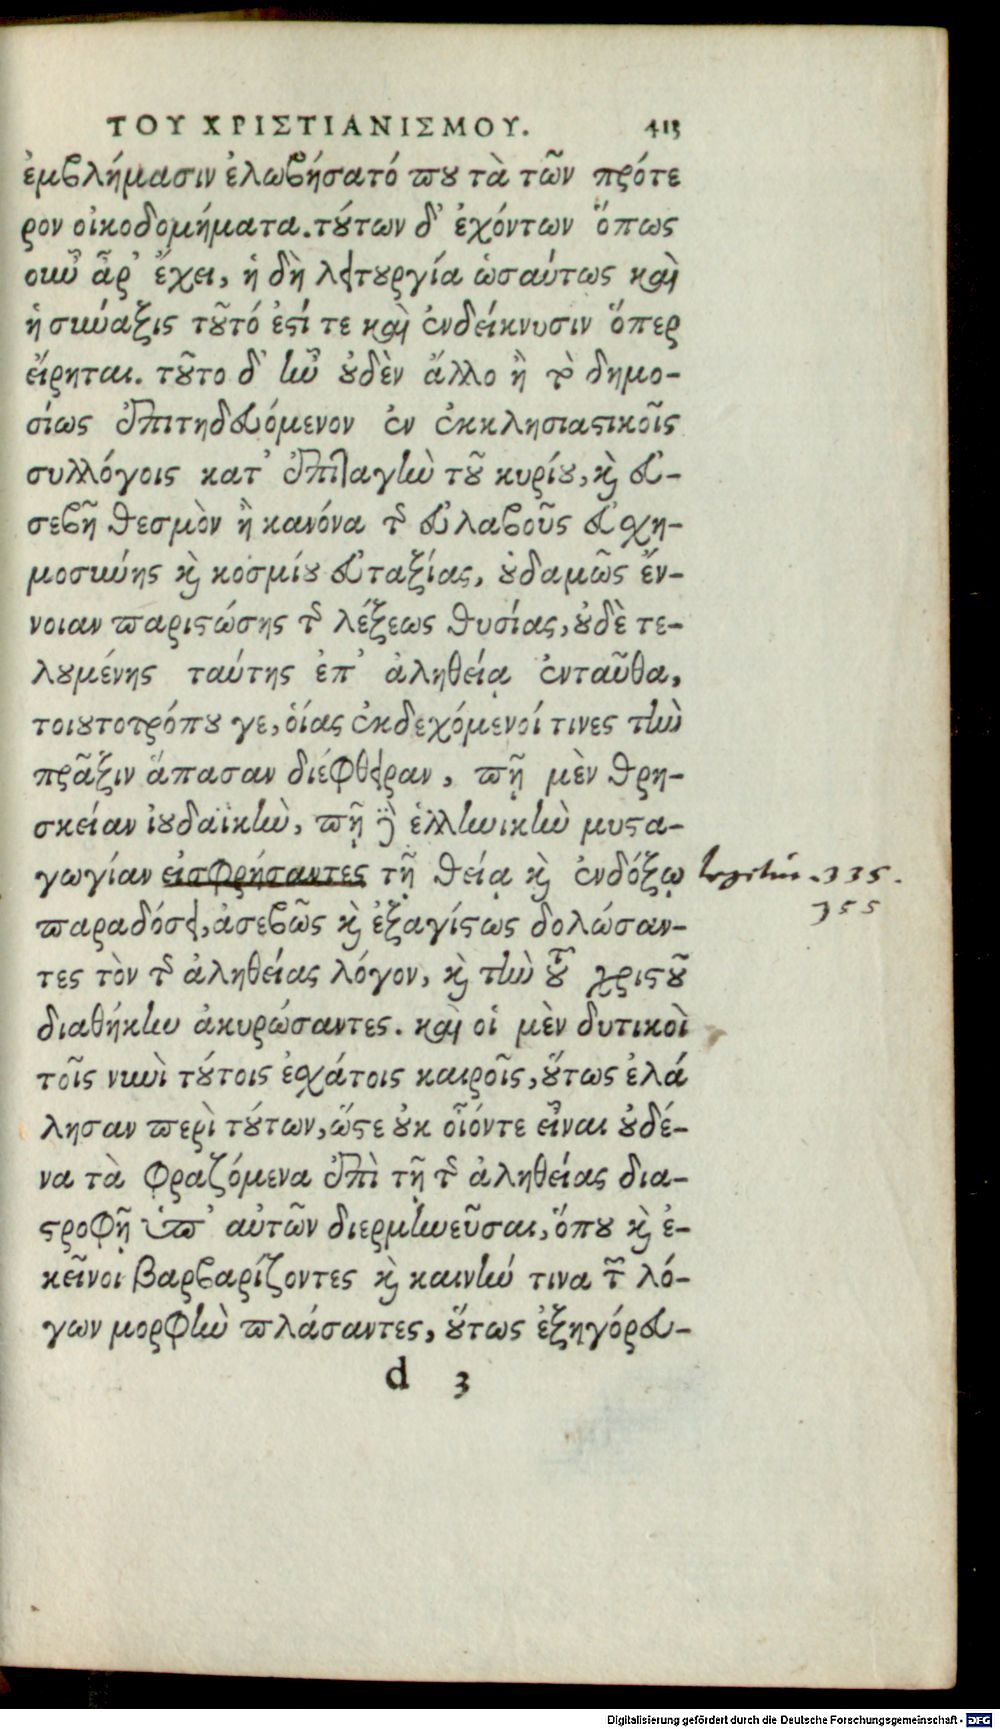 ΤΟΥ ΧΡΙΣΤΙΑΝΙΣΜΟΥ. 413
ἐμβλήμασιν ἐλωβήσατό που τὰ τῶν πρότε
ρον οἰκοδομήματα. τούτων δ' ἐχόντων ὅπως
οὖν ἂρ' ἔχει, ἡ δὴ λειτουργία ὡσαύτως καὶ
ἡ σύναξις τοῦτό ἐστί τε καὶ ἐνδείκνυσιν ὅπερ
εἴρηται. τοῦτο δ' ἦν οὐδὲν ἄλλο ἢ τὸ δημο-
σίως ἐπιτηδευόμενον ἐν ἐκκλησιαστικοῖς
συλλόγοις κατ' ἐπιταγὴν τοῦ κυρίου, καὶ εὐ-
σεβῆ θεσμὸν ἢ κανόνα τῆς εὐλαβοῦς εὐσχη-
μοσύνης καὶ κοσμίου εὐταξίας, οὐδαμῶς ἔν-
νοιαν παριστώσης τῆς λέξεως θυσίας, οὐδὲ τε-
λουμένης ταύτης ἐπ' ἀληθείᾳ ἐνταῦθα,
τοιουτοτρόπου γε, οἵας ἐκδεχόμενοί τινες τὴν
πρᾶξιν ἅπασαν διέφθειραν, πῆ μὲν θρη-
σκείαν ἰουδαϊκὴν, πῆ δὲ ἑλληνικὴν μυστα-
γωγίαν εἰσφρήσαντες τῇ θείᾳ καὶ ἐνδόξῳ
335.
355
παραδόσει, ἀσεβῶς καὶ ἐξαγίστως δολώσαν-
τες τὸν τῆς ἀληθείας λόγον, καὶ τὴν τοῦ χριστοῦ
διαθήκην ἀκυρώσαντες. καὶ οἱ μὲν δυτικοὶ
τοῖς νυνὶ τούτοις ἐσχάτοις καιροῖς, οὕτως ἐλά
λησαν περὶ τούτων, ὥστε οὐκ οἷόντε εἶναι οὐδέ-
να τὰ φραζόμενα ἐπὶ τῇ τῆς ἀληθείας δια-
στροφῇ ὑπ' αὐτῶν διερμηνεῦσαι, ὅπου καὶ ἐ-
κεῖνοι βαρβαρίζοντες καὶ καινήν τινα τῶν λό-
γων μορφὴν πλάσαντες, οὕτως ἐξηγόρευ-
d 3
Digitalisierung gefördert durch die Deutsche Forschungsgemeinschaft - DFG